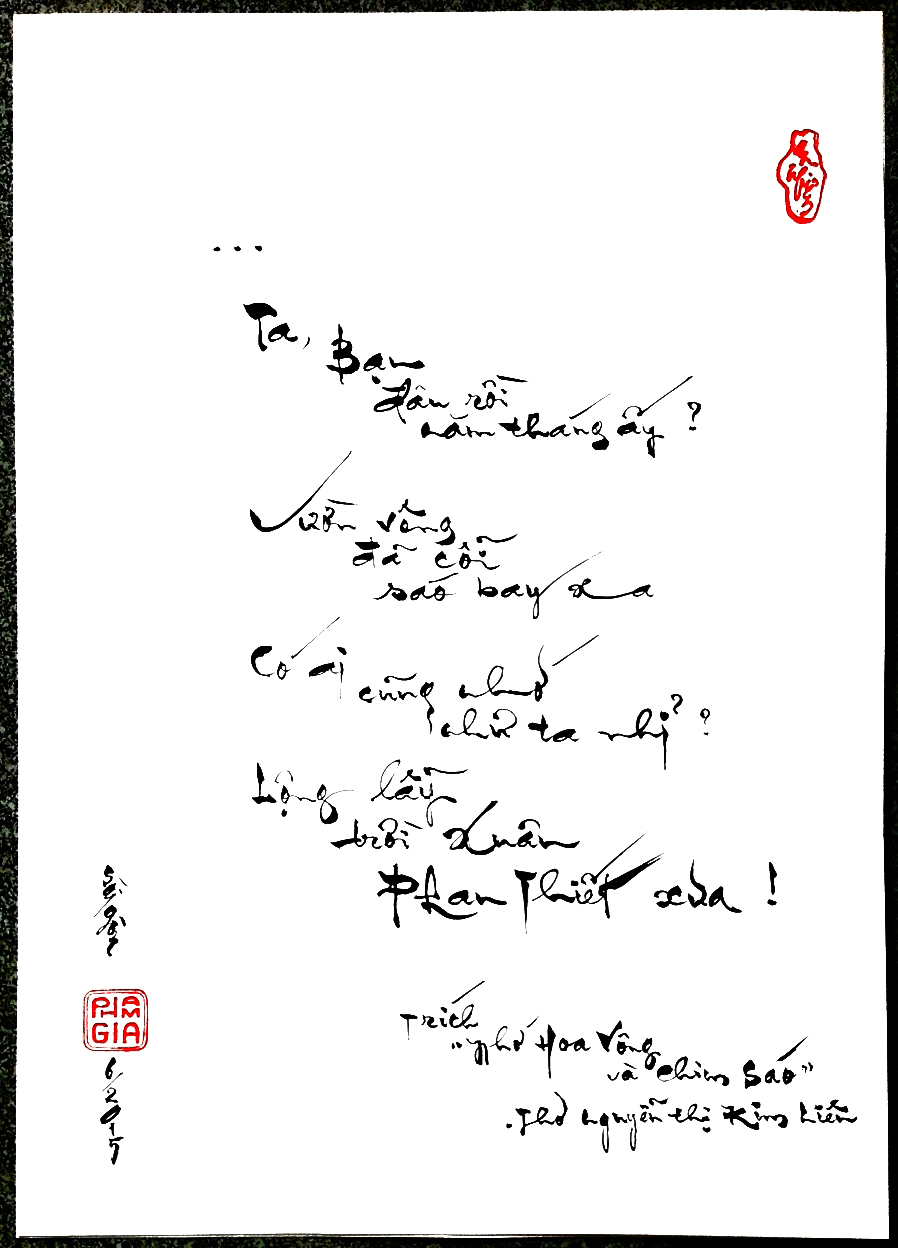 ...
Ta,
Bạn
đâu rồi
năm tháng ấy ?
Vườn vông
đã cỗi
sáo bay xa
Có ai
cũng nhớ
như ta nhỉ ?
Lộng lẫy
trời xuân
Phan Thiết xưa !
Trích
"Nhớ Hoa Vông
và chim Sáo"
.Thơ Nguyễn thị Kim Liên
PHẠM
GIA
6/2015